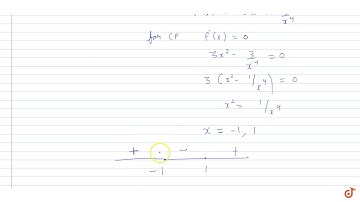 x⁴
for CP f'(x) = 0
3x² - 3/x⁴ = 0
3 (x² - 1/x⁴) = 0
x² = 1/x⁴
x = -1, 1
+ - +
-1 1
doubtnut